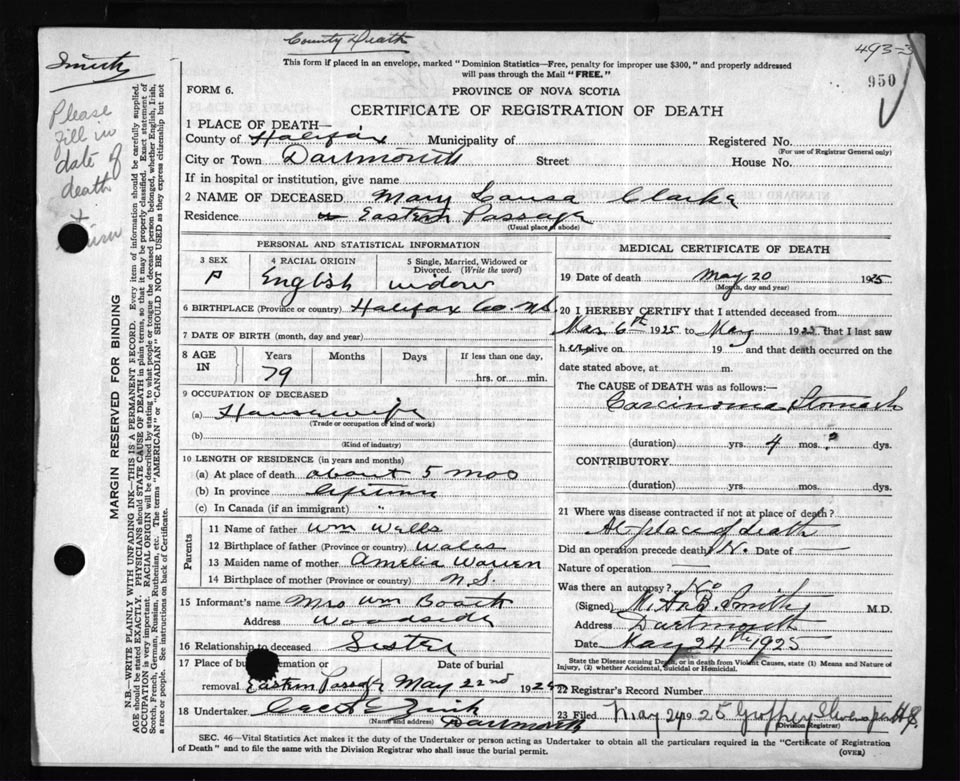 County Death
493-3
950
Smith
Please
fill in
date of
death
+
This form if placed in an envelope, marked "Dominion Statistics—Free, penalty for improper use $300," and properly addressed
will pass through the Mail "FREE."
FORM 6.
PROVINCE OF NOVA SCOTIA
CERTIFICATE OF REGISTRATION OF DEATH
1 PLACE OF DEATH—
County of Halifax Municipality of Registered No.
(For use of Registrar General only)
City or Town Dartmouth Street House No.
If in hospital or institution, give name
2 NAME OF DECEASED Mary Lousa Clarke
Residence Eastern Passage
(Usual place of abode)
PERSONAL AND STATISTICAL INFORMATION
3 SEX 4 RACIAL ORIGIN 5 Single, Married, Widowed or
Divorced. (Write the word)
English widow
6 BIRTHPLACE (Province or country) Halifax Co. N.S.
7 DATE OF BIRTH (month, day and year)
8 AGE IN Years Months Days If less than one day,
79 hrs. or min.
9 OCCUPATION OF DECEASED
(a) Housewife
(Trade or occupation or kind of work)
(b)
(Kind of industry)
10 LENGTH OF RESIDENCE (in years and months)
(a) At place of death about 5 mos
(b) In province Lifetime
(c) In Canada (if an immigrant) "
Parents
11 Name of father Wm Wells
12 Birthplace of father (Province or country) Wales
13 Maiden name of mother Amelia Warren
14 Birthplace of mother (Province or country) N.S.
15 Informant's name Mrs Wm
Address Woodside
16 Relationship to deceased Sister
17 Place of burial, cremation or Date of burial
removal Eastern Passage May 22nd 192
18 Undertaker
(Name and address) Dartmouth
MEDICAL CERTIFICATE OF DEATH
19 Date of death May 20 1925
(Month, day and year)
20 I HEREBY CERTIFY that I attended deceased from
Mar 6th 1925 to May 192 that I last saw
her alive on 19 and that death occurred on the
date stated above, at m.
The CAUSE of DEATH was as follows:—
Carcinoma Stomach
(duration) yrs. 4 mos. ? dys.
CONTRIBUTORY
(duration) yrs. mos. dys.
21 Where was disease contracted if not at place of death?
At place of death
Did an operation precede death? N. Date of —
Nature of operation —
Was there an autopsy? No
(Signed) Smith M.D.
Address Dartmouth
Date May 24th 1925
State the Disease causing Death, or in death from Violent Causes, state (1) Means and Nature of
Injury, (2) whether Accidental, Suicidal or Homicidal.
22 Registrar's Record Number
23 Filed May 24 1925
(Division Registrar)
SEC. 46—Vital Statistics Act makes it the duty of the Undertaker or person acting as Undertaker to obtain all the particulars required in the "Certificate of Registration
of Death" and to file the same with the Division Registrar who shall issue the burial permit.
(OVER)
MARGIN RESERVED FOR BINDING
N.B.—WRITE PLAINLY WITH UNFADING INK—THIS IS A PERMANENT RECORD. Every item of information should be carefully supplied.
AGE should be stated EXACTLY. PHYSICIANS should STATE CAUSE OF DEATH in plain terms, so that it may be properly classified. Exact statement of
OCCUPATION is very important. RACIAL ORIGIN will be described by stating to what people or tongue the deceased person belonged, whether English, Irish,
Scotch, French, German, Russian, Ruthenian, etc. The terms "AMERICAN" or "CANADIAN" SHOULD NOT BE USED as they express citizenship but not
a race or people. See instructions on back of Certificate.